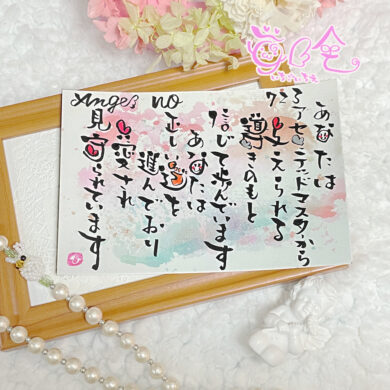 Angel no
723
あなたは
アセンデッドマスターから
与えられる
導きのもと
信じて歩んでいます
あなたは
正しい道を
選んでおり
愛され
見守られています